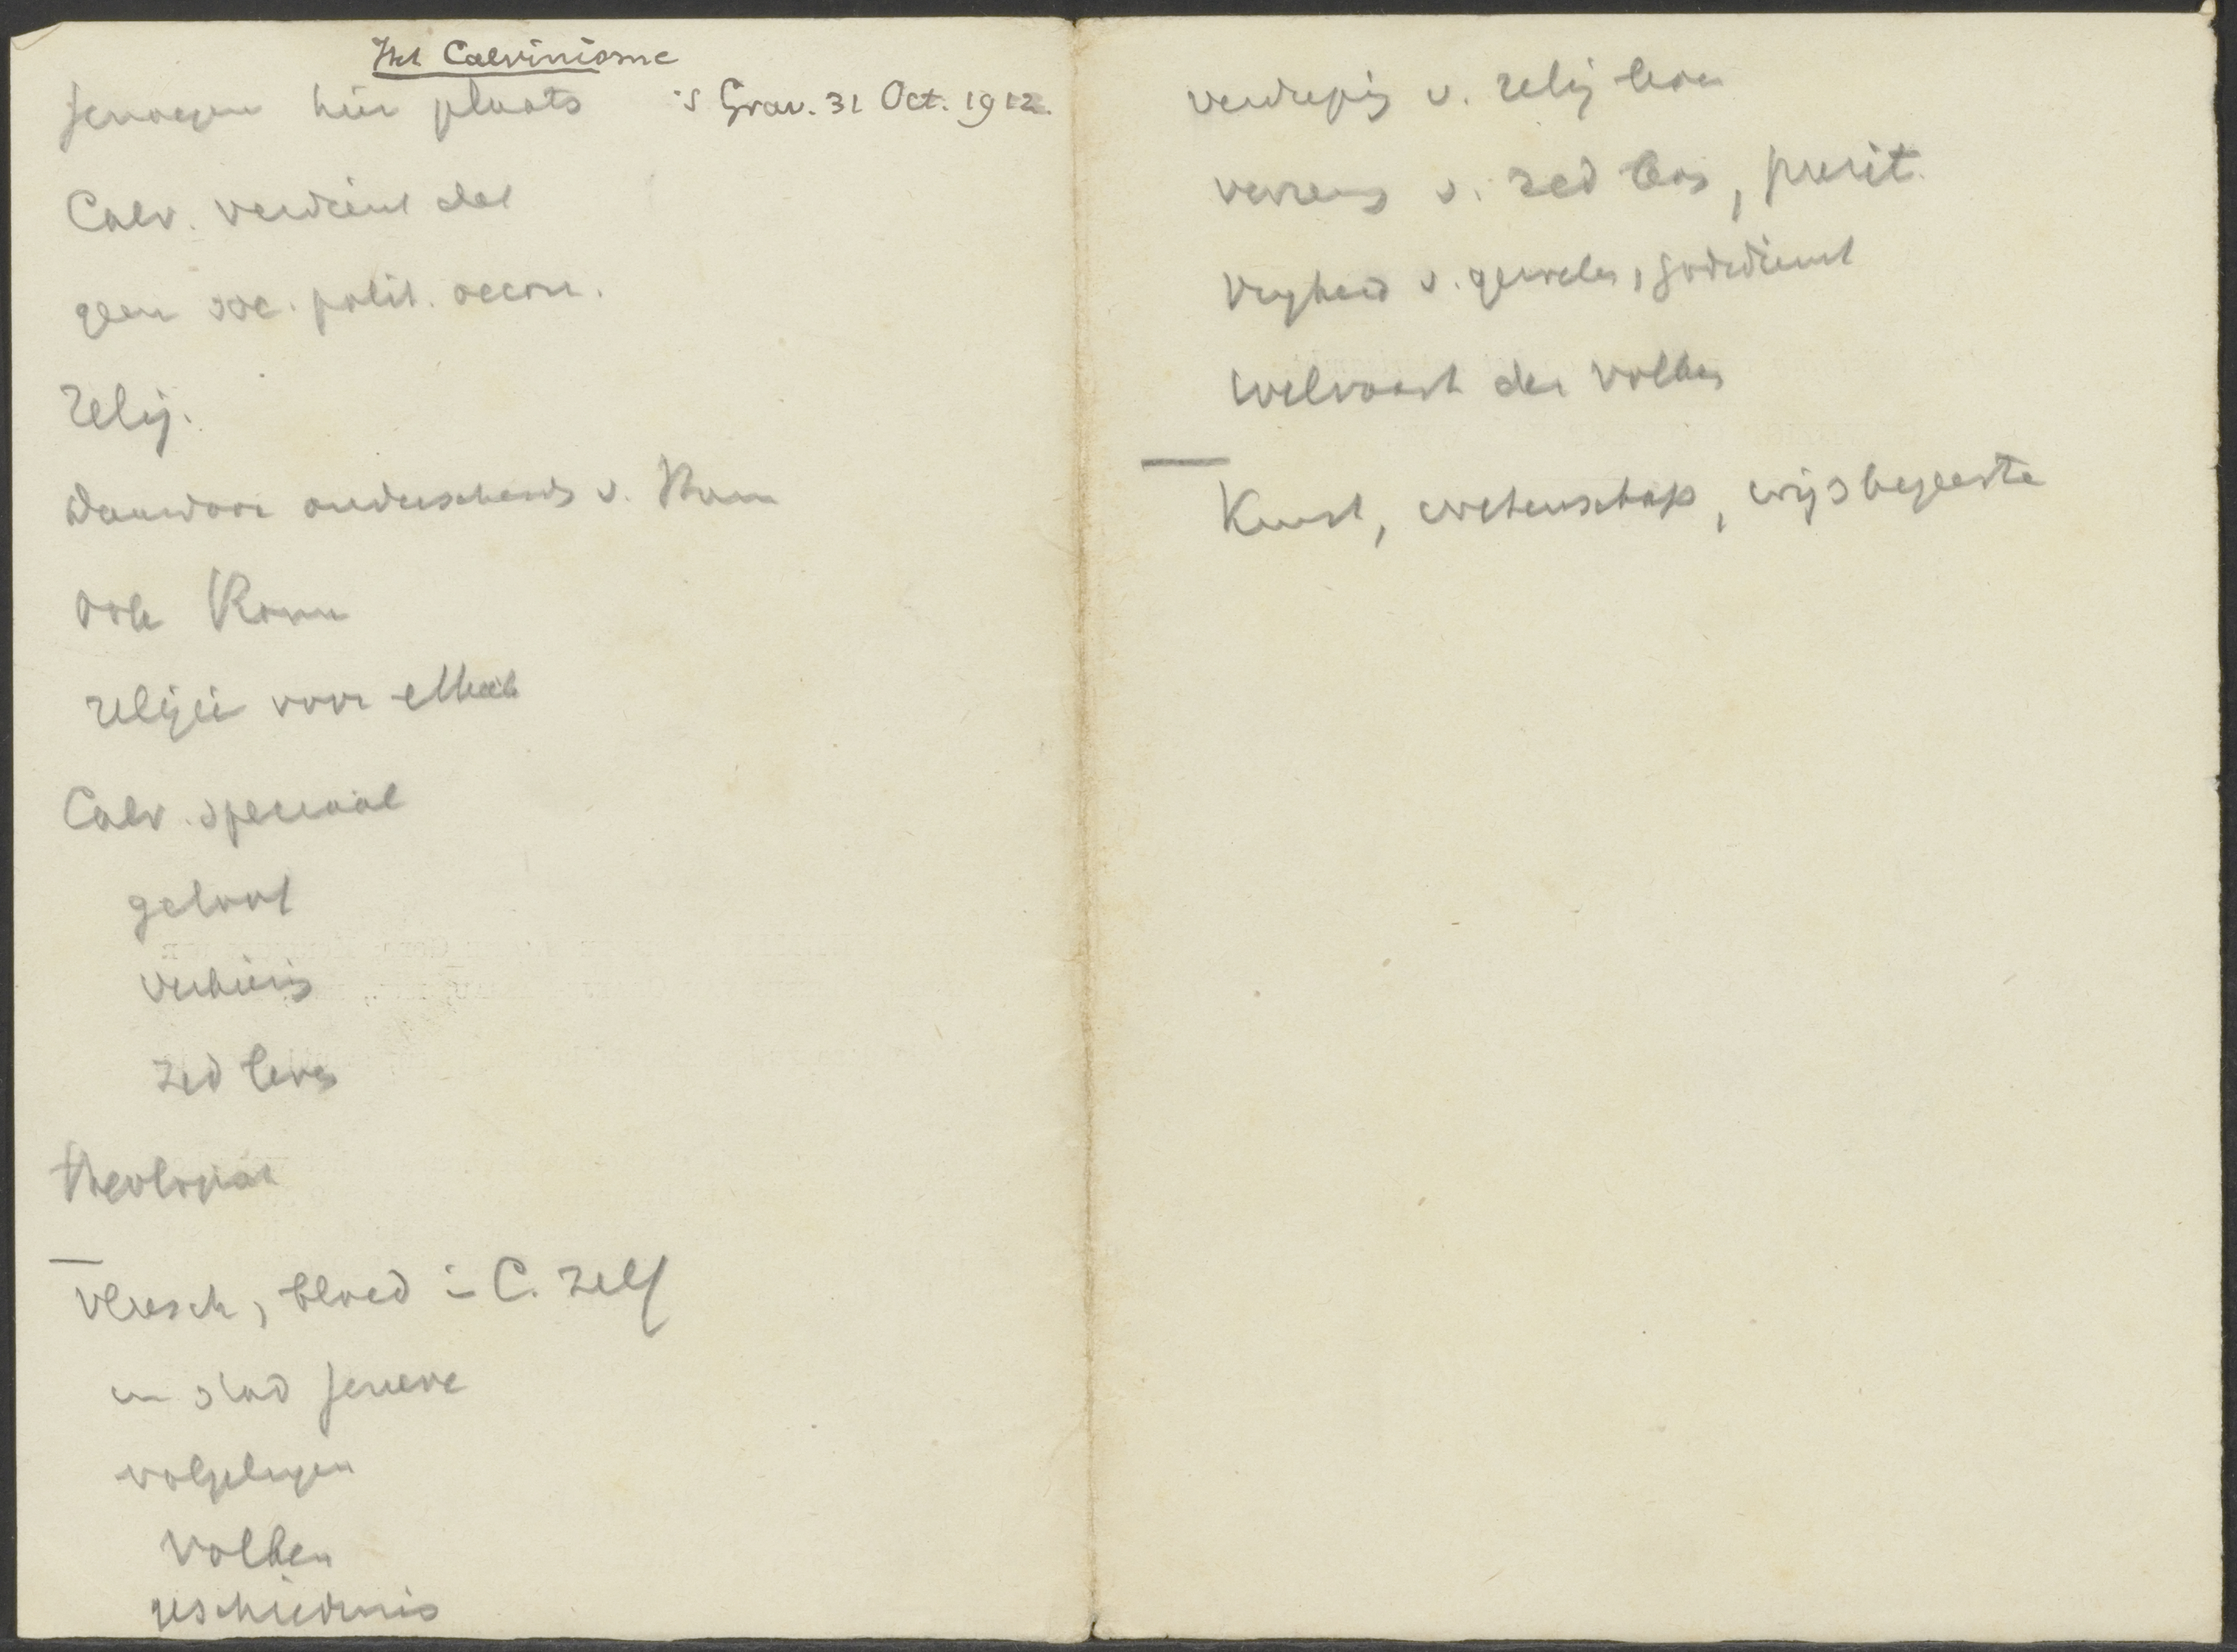 Het Calvinisme
Genoegen hier plaats 's Grav. 31 Oct. 1912.
Calv. verdient dat
geen soc. polit. oecon.
Relig.
Daardoor onderscheids v. Rom
ook Rome
religie voor
Calv. speciaal
geloof
verkiezing
zed leven
theologie
vleesch, bloed in C. zelf
in stad Geneve
volgelingen
volken
geschiedenis
verdieping v. relig leven
v. zed leven, purit.
vryheid v. geweten, godsdienst
welvaart der volken
Kunst, wetenschap, wijsbegeerte